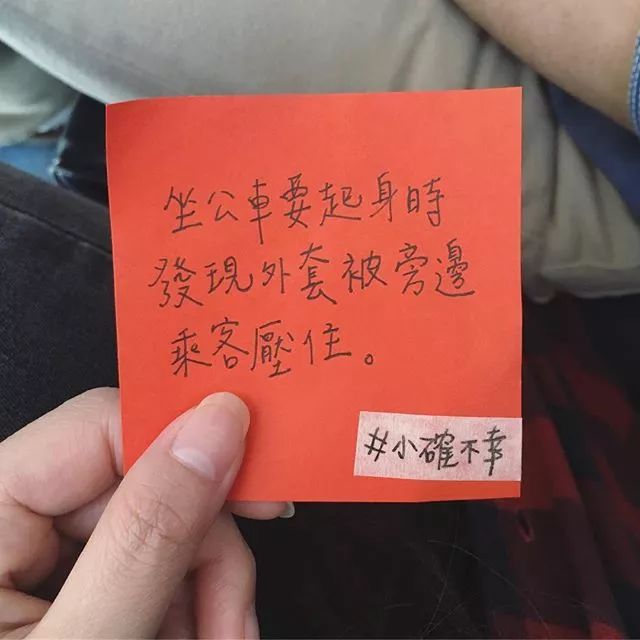 坐公車要起身時
發現外套被旁邊
乘客壓住。
#小確不幸